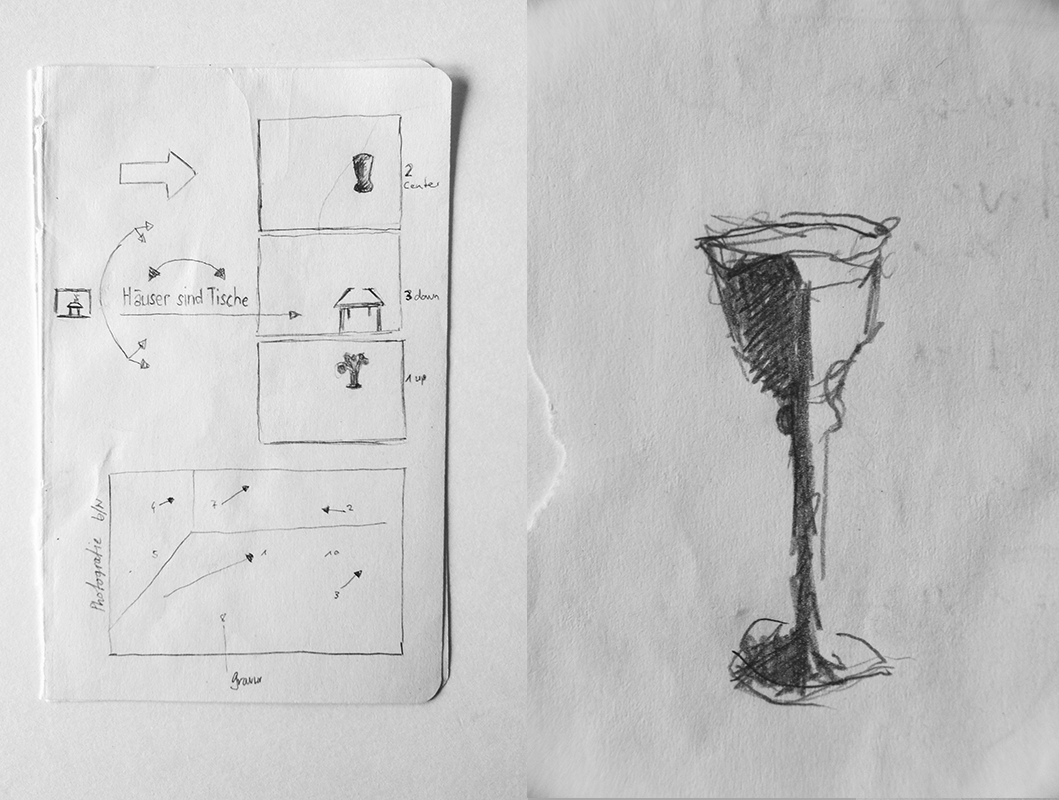 2
center
Häuser sind Tische
3 down
1 up
Photografie b/w
6 7 2
5 1 10
3
8